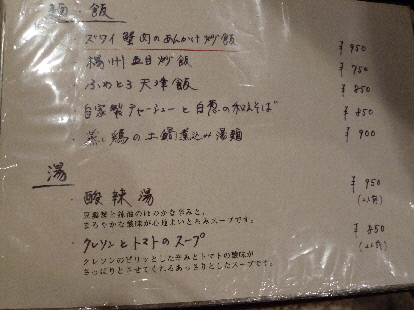 麺・飯
ズワイ蟹肉のあんかけ炒飯 ¥950
揚州五目炒飯 ¥750
ふわとろ天津飯 ¥850
自家製チャーシューと白葱の和えそば ¥850
蒸し鶏の土鍋煮込み湯麺 ¥900
湯
・酸辣湯 ¥950
(2人前)
豆板醤と辣油のほのかな辛みと、
まろやかな酸味が心地よいとろみスープです。
・クレソンとトマトのスープ ¥850
(2人前)
クレソンのピリッとした辛みとトマトの酸味が
さっぱりとさせてくれるあっさりとしたスープです。